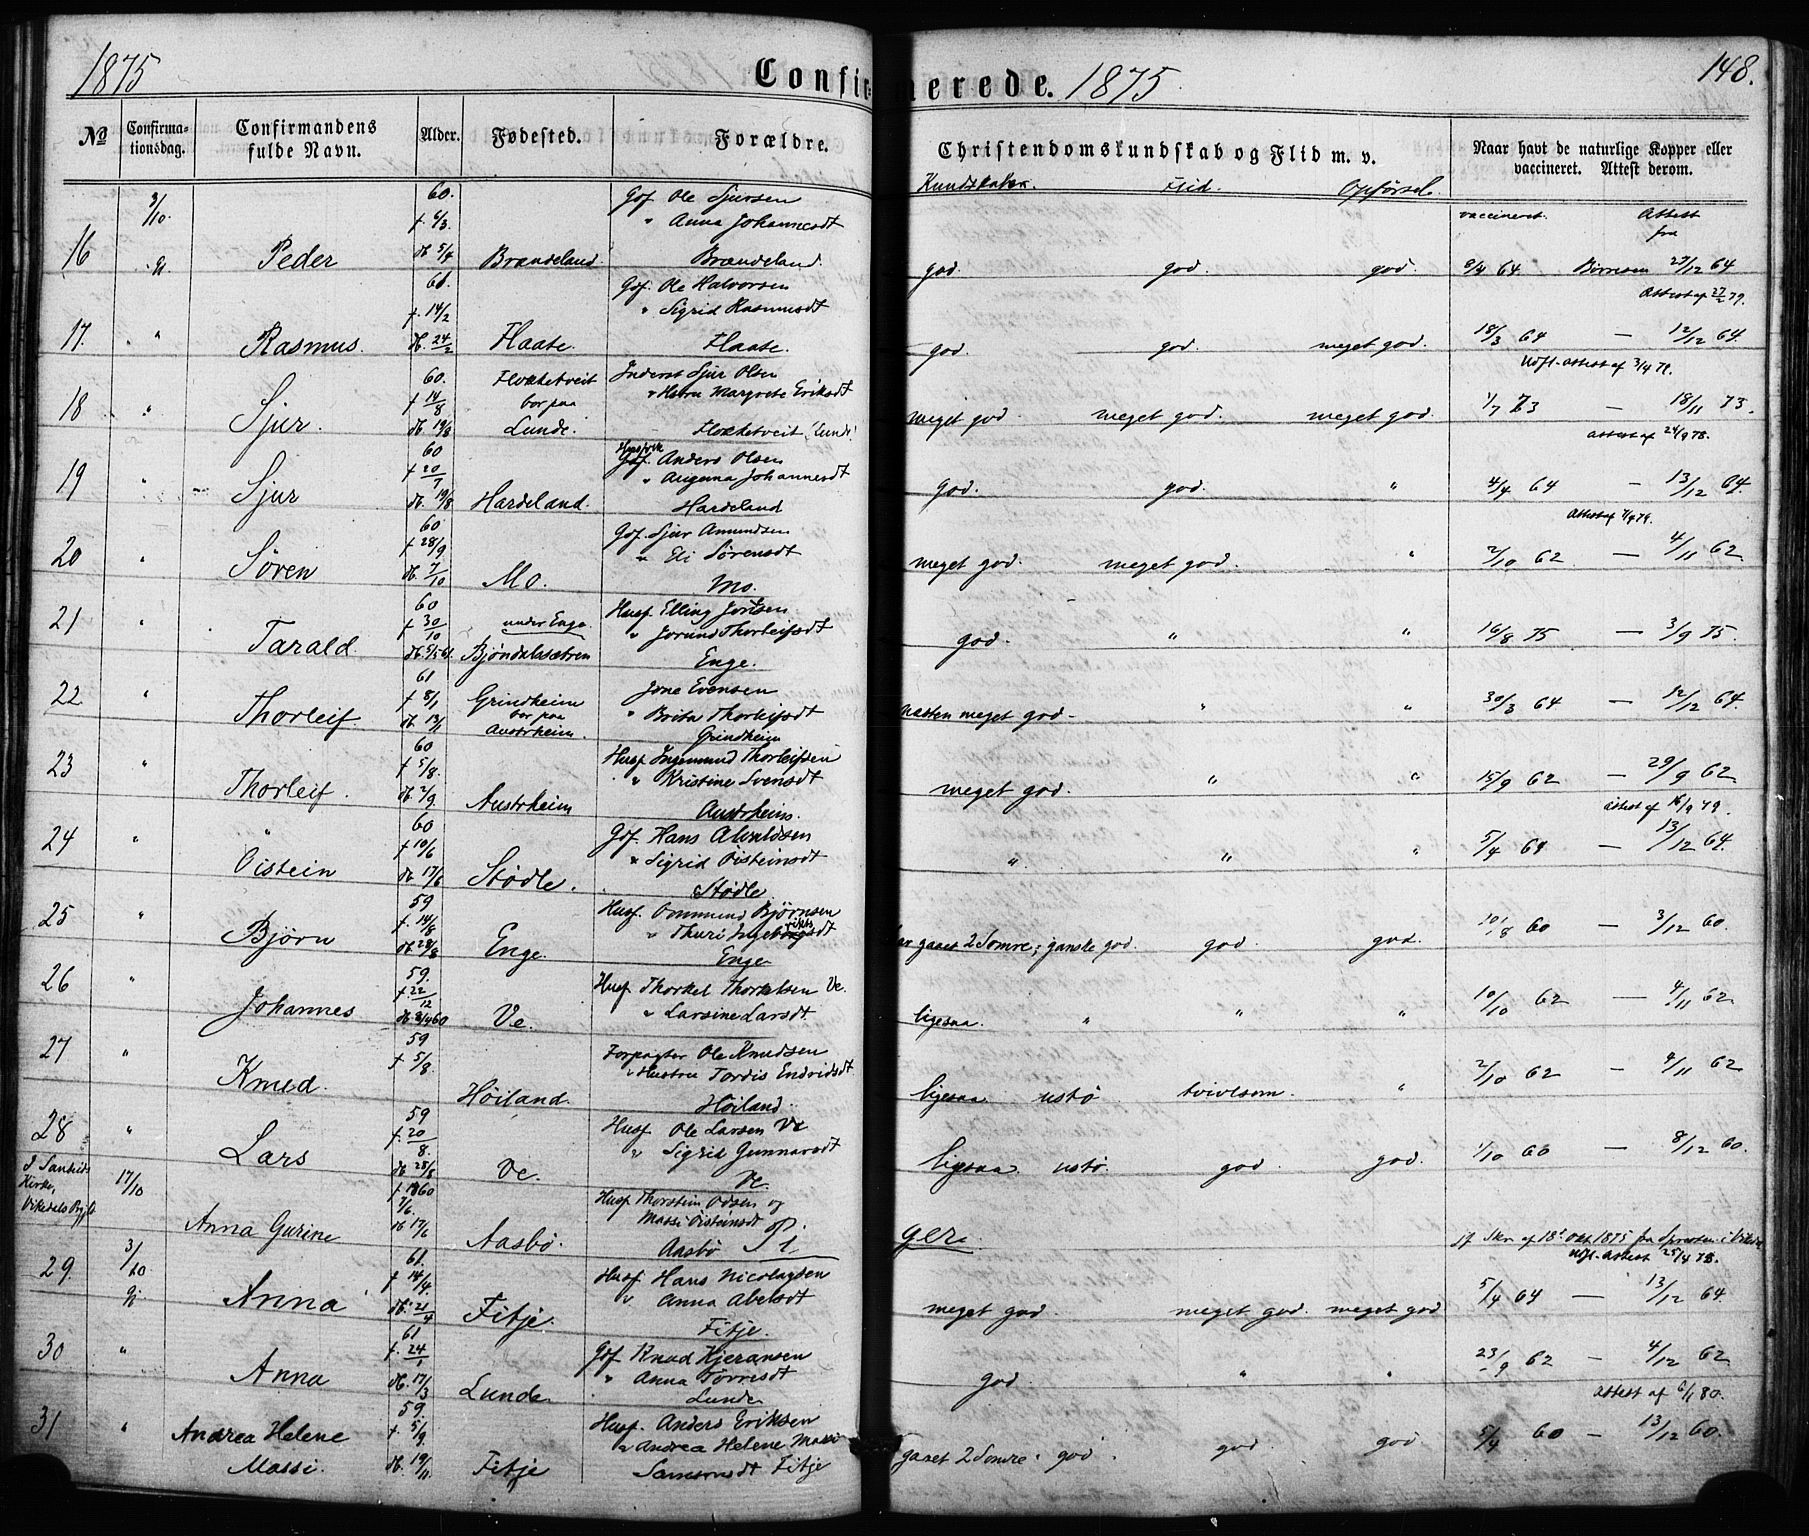 1875 Confirmerede. 1875 148.
No Confirmationsdag. Confirmandens fulde Navn. Alder. Fødested. Forældre. Christendomskundskab og Flid m. v. Naar havt de naturlige Kopper eller vaccineret. Attest derom.
Kundskaber. Flid. Opførsel. vaccineret. Attest fra
60. Gdf. Ole Sjursen
3/10. f. 6/3. " Anna Johannesdt
16 Peder Brændeland. Brændeland. god. god. god. 9/4 64 Børresen 27/12 64
Gdf. Ole Halvorsen Attest af 27/2 79.
f. 14/2 " Sigrid Rasmusdt
17. " Rasmus. d. 24/2 Flaate. Flaate. god. god. meget god. 18/3 64 — 12/12 64.
60. Flokketveit Inderst Sjur Olsen Udfl-attest af 3/4 78.
18 " f. 14/8 bor paa " Hustru Margrete Eriksdt
Sjur. d. 19/8 Lunde. Flokketveit (Lunde) meget god meget god. meget god. 1/7 73 — 18/11 73.
60 Gdf. Anders Olsen attest af 24/9 78.
19 " f. 20/7 " Johannesdt
Sjur d. 19/8 Hardeland. Hardeland god. god. " 4/4 64 — 13/12 64.
60 Gdf. Sjur Amundsen
20 " f. 28/9 " Eli Sørensdt
Søren d. 7/10 Mo. Mo. meget god. meget god. " 2/10 62 — 4/11 62
60 Husf. Elling
21 " f. 30/10 under Enge. " Jorund Thorleifsdt
Tarald Bjøndalsætren Enge. god. " " 16/8 75 — 3/9 75.
61 Jone Evensen
22 " f. 8/1 Grindheim " Brita Thorleifsdt
Thorleif. d. 13/1 bor paa Austrheim. Grindheim næsten meget god. " " 30/3 64 — 12/12 64.
60 Husf. Ingemund Thorleifsen
23 " f. 5/8. " Kristine Svensdt
Thorleif. d. 2/9 Austrheim Austrheim. meget god. " " 15/9 62 — 29/9 62
60 Gdf. Hans attest af 16/9 79.
24 " f. 10/6 " Sigrid Oisteinsdt
Oistein d. 17/6 Stødle. Stødle. " " " 5/4 64 — 13/12 64.
59 Husf. Ommund Bjørnsen
25 " f. 14/8 " Thuri
Bjørn d. 28/8 Enge. Enge gaaet 2 Somre; ganske god. god. god. 10/8 60 — 3/12 60.
59. Husf. Thorkel Thorkelsen Ve.
26 " f. 22/12 " Larsine Larsdt.
Johannes d. 8/4 60 Ve. ligesaa. " " " 10/10 62 — 4/11 62.
59 Forpagter Ole Knudsen
27 " f. 5/8. " Hustru Tordis Endridsdt
Knud. Høiland. Høiland. ligesaa ustø tvivlsom. " 2/10 62 — 4/11 62
59 Husf. Ole Larsen Ve
28 " f. 20/8. " Sigrid Gunnarsdt
Lars d. 28/8 Ve. Ve. ligesaa ustø. god. god. 1/10 60 — 8/12 60.
Kirke, 17/10 f. 1860 Husf. Thorstein Odsen og
7/6. Massi Oisteinsdt
Anna Gurine d. 17/6 Aasbø. Aasbø Piger. jf Skr. af 18d Okt. 1875 fra Spresten i Vikedal
3/10 61. Husf. Hans Nicolaysen Udfl.-attest 25/4 78.
29. f. 14/4. " Anna Abelsdt
Anna d. 21/4 Fitje. Fitje. meget god. meget god. meget god 5/4 64 — 13/12 64
61 Gdf. Knud Kjeransen
30 " f. 24/1 " Anna Tørresdt
Anna d. 17/3 Lunde. Lunde god. " " 23/9 62 — 4/12 62
59. Husf. Anders Eriksen attest af 6/1 80.
31 " Andrea Helene f. 5/9 " Andrea Helene Massi
Massi. d. 19/11 Fitje Fitje gaaet 2 Somre. god. god. god. 5/4 60 — 13/12 60.